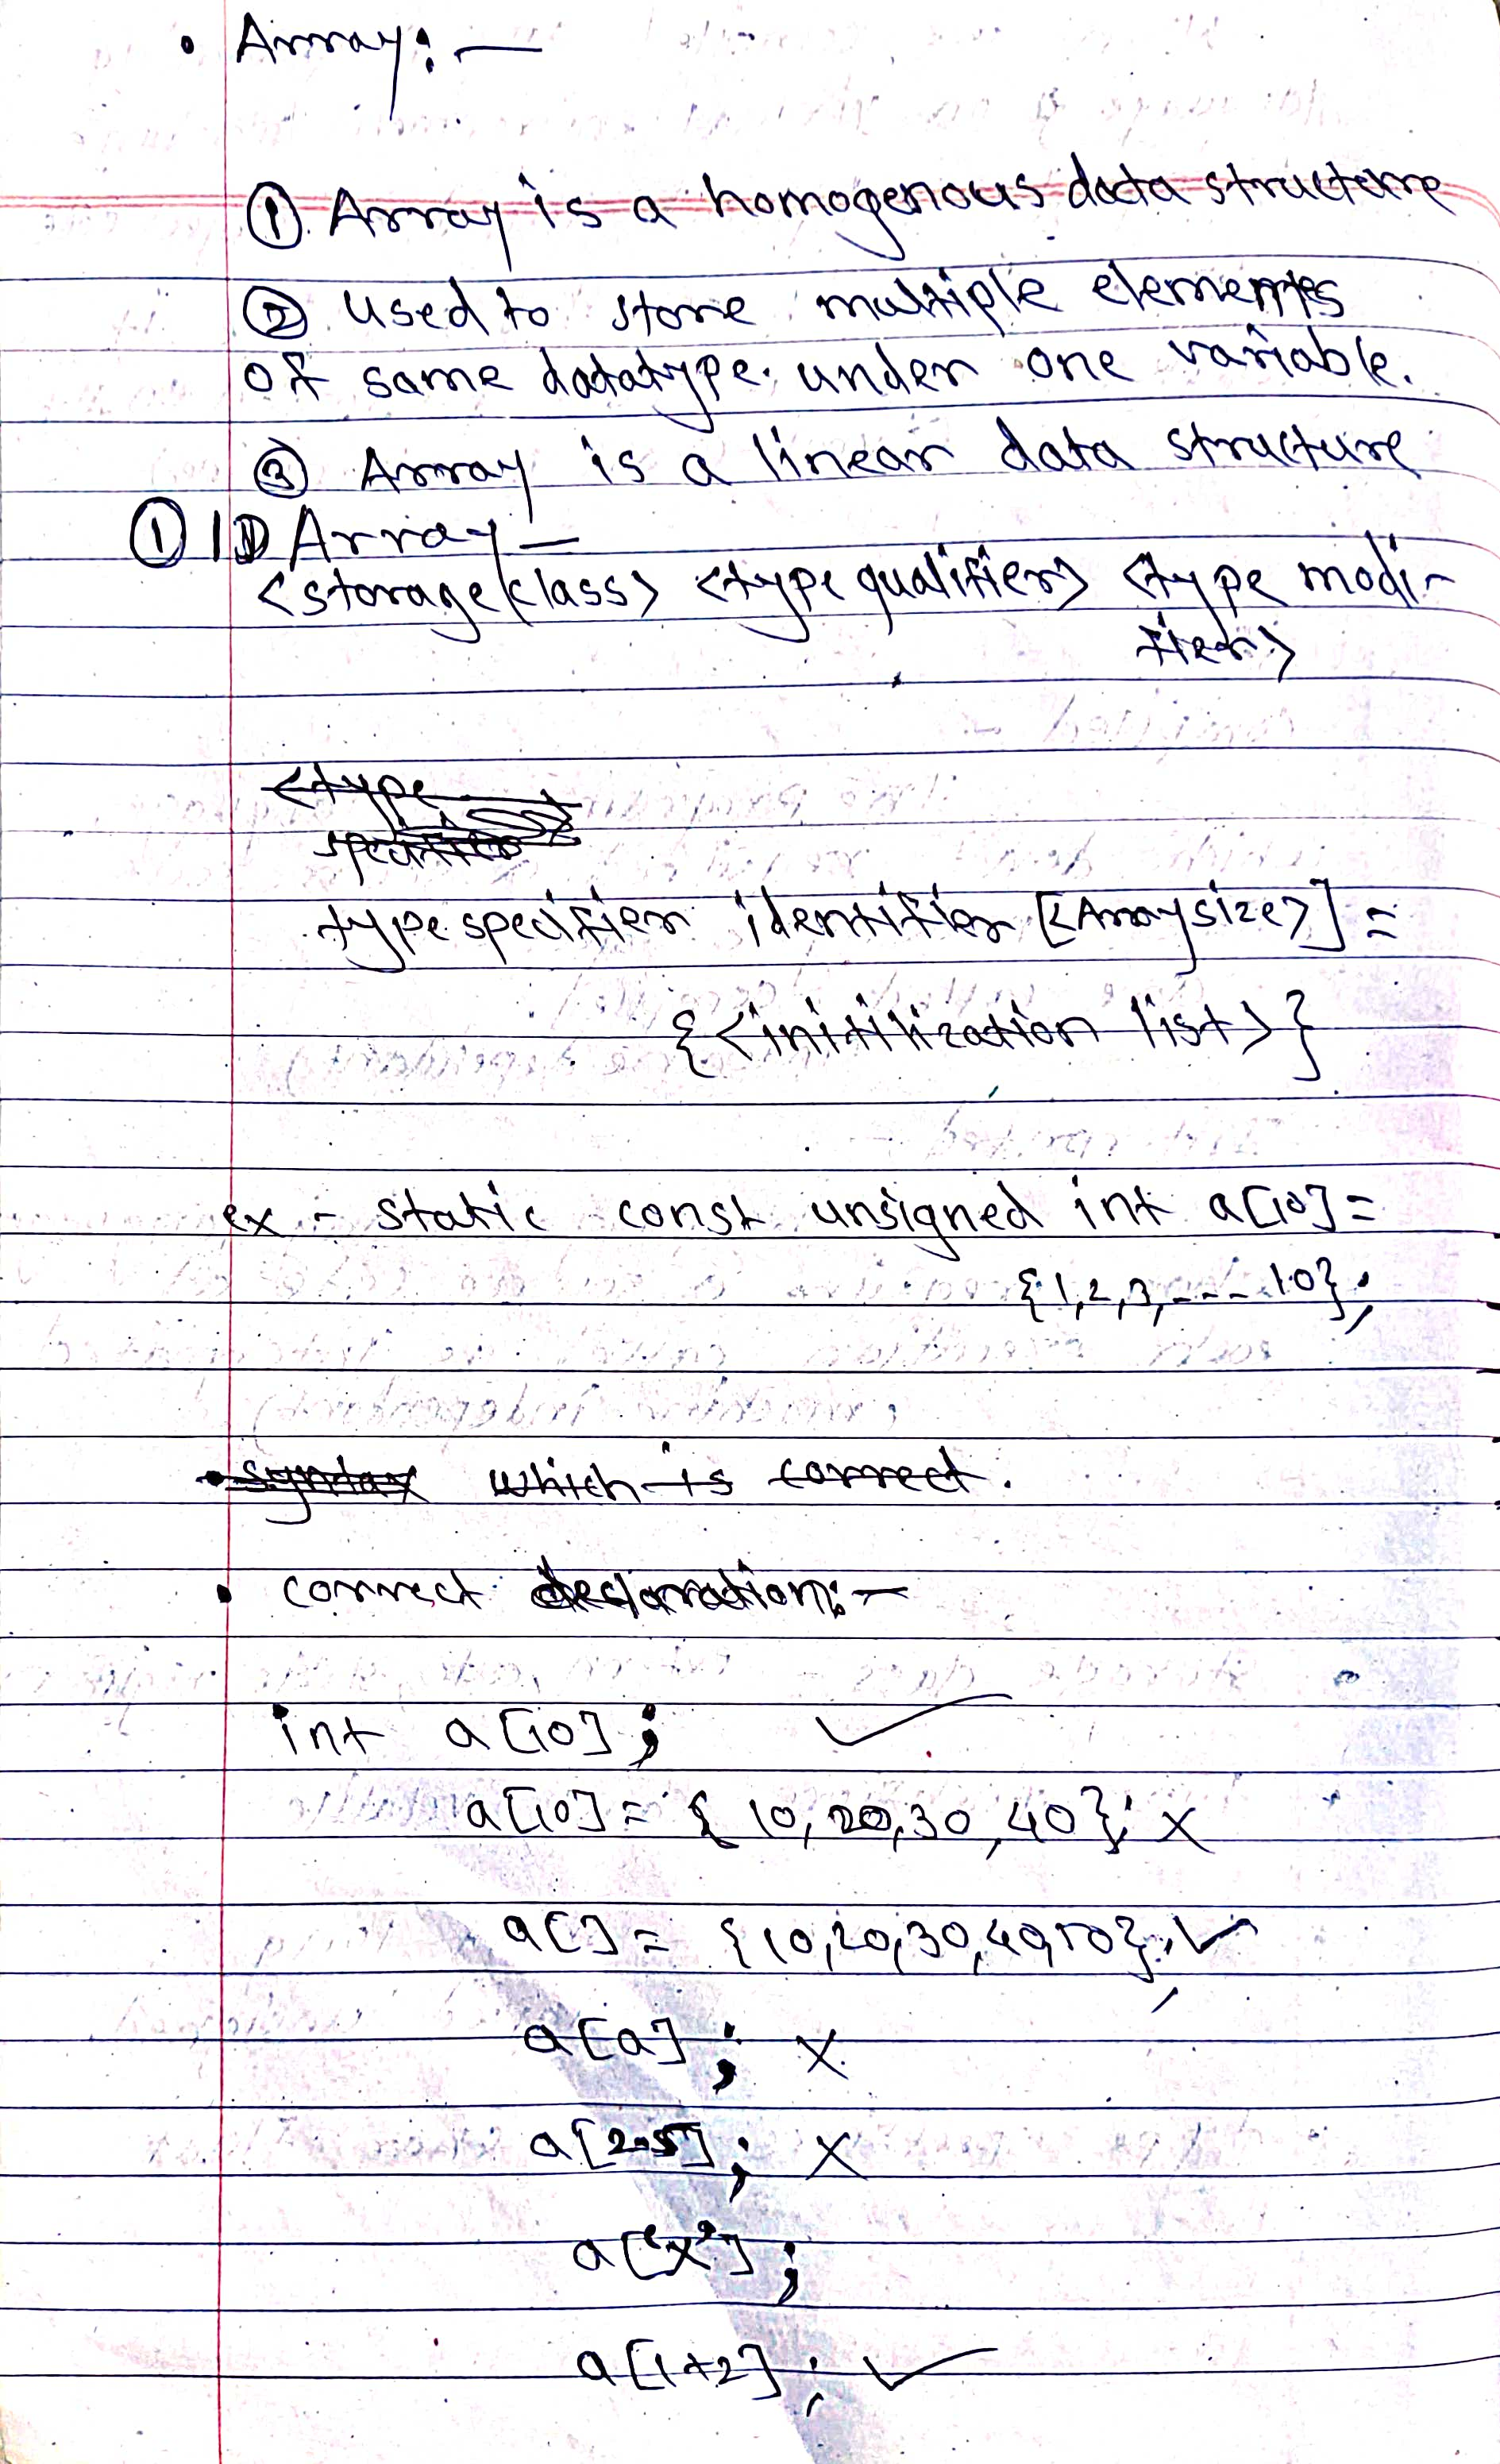 • Array:-
① Array is a homogenous data structure
② used to store multiple elements
of same datatype. under one variable.
③ Array is a linear data structure
① 1D Array -
<storage class> <type qualifier> <type modi-
fier>
<type
specifier
type specifier identifier [<Array size>] =
{<initilization list>}
ex - static const unsigned int a[10] =
{1,2,3,---10};
• syntax which is correct.
• correct declaration:-
int a[10]; ✓
a[10] = {10,20,30,40}; X
a[] = {10,20,30,40,50}; ✓
a[a]; X
a[2.5]; X
a['x'];
a[1+2]; ✓